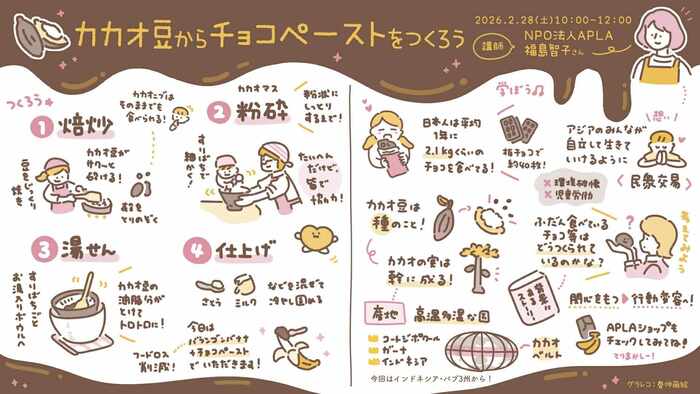 カカオ豆からチョコペーストをつくろう
2026.2.28(土)10:00-12:00
講師
NPO法人APLA
福島智子さん
つくろう
1 焙炒
カカオニブは
そのままでも
食べられる!
豆をじっくり
焼き
カカオ豆が
サクッと
砕ける!
殻を
とりのぞく
2 粉砕
カカオマス
粉状に
もっとり
するまで!
すりばちで
細かく!
たいへん
だけど、
皆で
協力!
3 湯せん
すりばちごと
お湯入りボウルへ
カカオ豆の
油脂分が
とけて
トロトロに!
4 仕上げ
さとう
ミルク
などを混ぜて
冷やし固める
フードロス
削減!
今日は
バランゴンバナナ
+チョコペースト
でいただきます!
学ぼう
日本人は平均
1年に
2.1kgくらいの
チョコを食べてる!
板チョコで
約40枚!
カカオ豆は
種のこと!
カカオの実は
幹に成る!
産地
高温多湿な国
コートジボワール
ガーナ
インドネシア
カカオ
ベルト
今回はインドネシア・パプア州から!
想い
アジアのみんなが
自立して生きて
いけるように
民衆交易
×環境破壊
×児童労働
ふだん食べている
チョコ等は
どうつくられて
いるのかな?
関心をもつ
行動変容へ!
APLAショップも
チェックしてみてね!